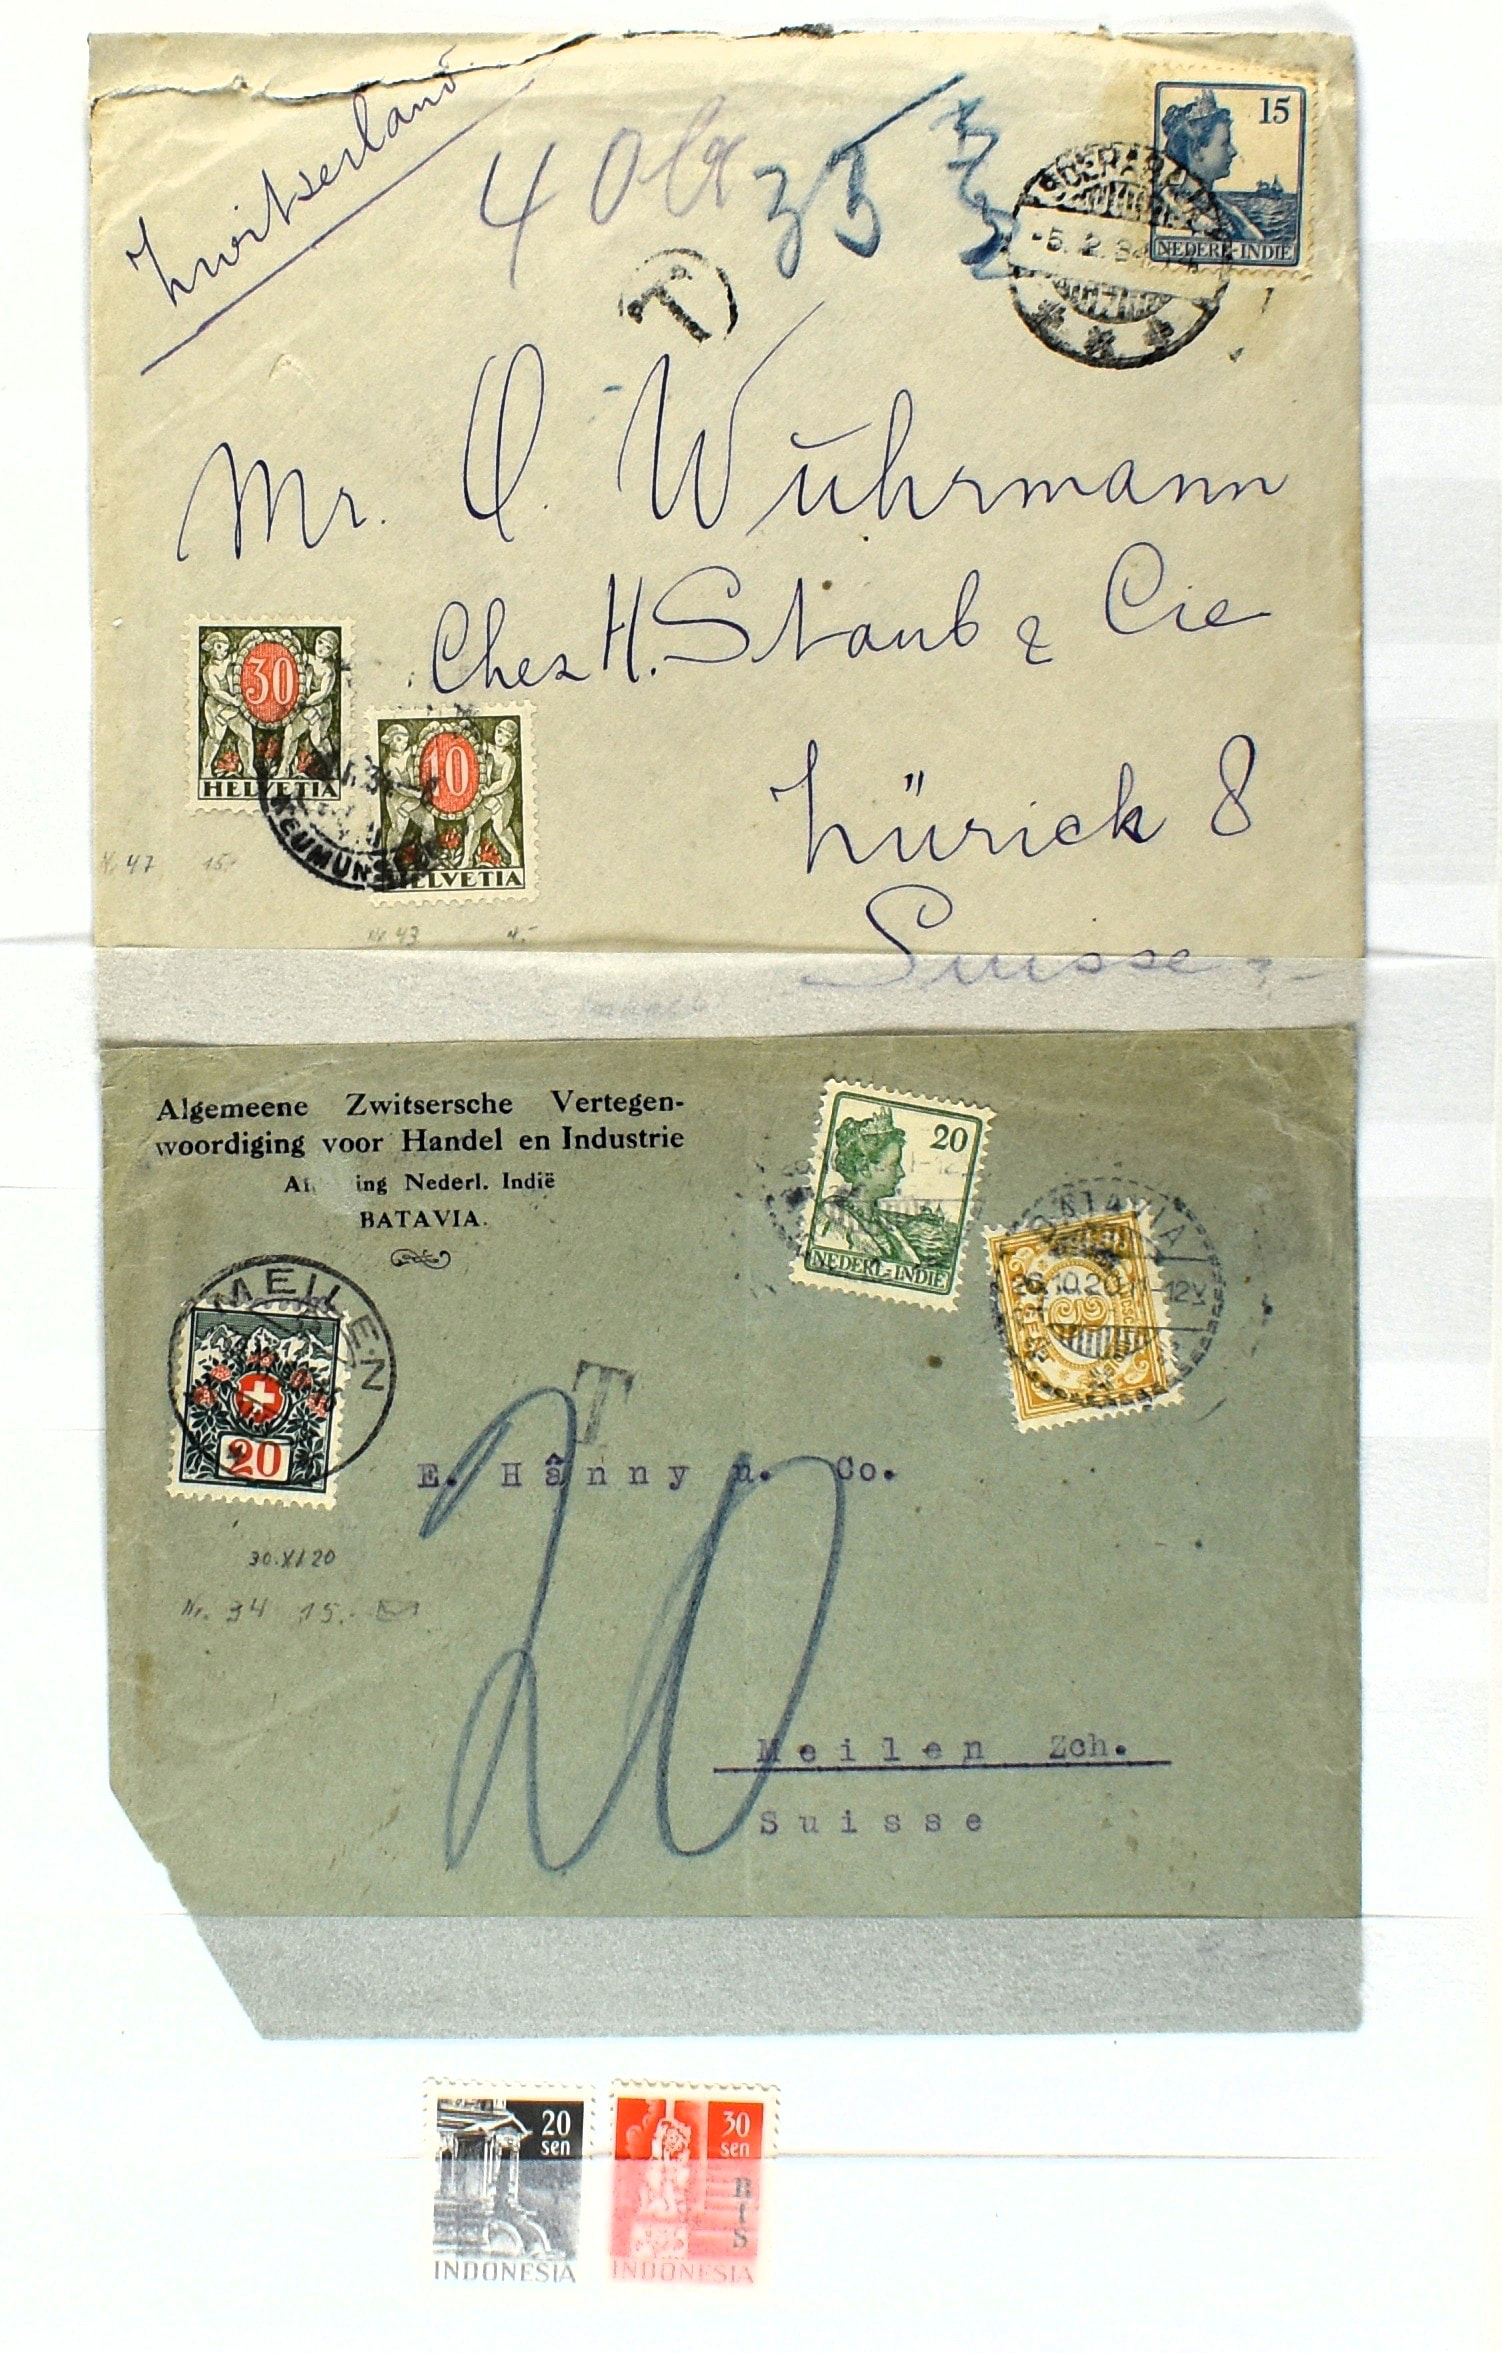 Zwitserland
40 ct
35
T
15
NEDERL-INDIE
SOERABAJA
-5. 2. 34
Mr. O. Wuhrmann
Chez H. Staub & Cie
Zürich 8
Suisse
30
HELVETIA
10
HELVETIA
NEUMÜNS
Nr 47 15.-
Nr 43 4.-
Algemeene Zwitsersche Vertegen-
woordiging voor Handel en Industrie
Af ing Nederl. Indië
BATAVIA.
20
NEDERL-INDIE
BATAVIA
26.10.20 11-12V
MEILEN
20
T
20
E. Hänny u. Co.
30.XI.20
Nr. 34 15.-
Meilen Zch.
Suisse
20
sen
INDONESIA
30
sen
RIS
INDONESIA